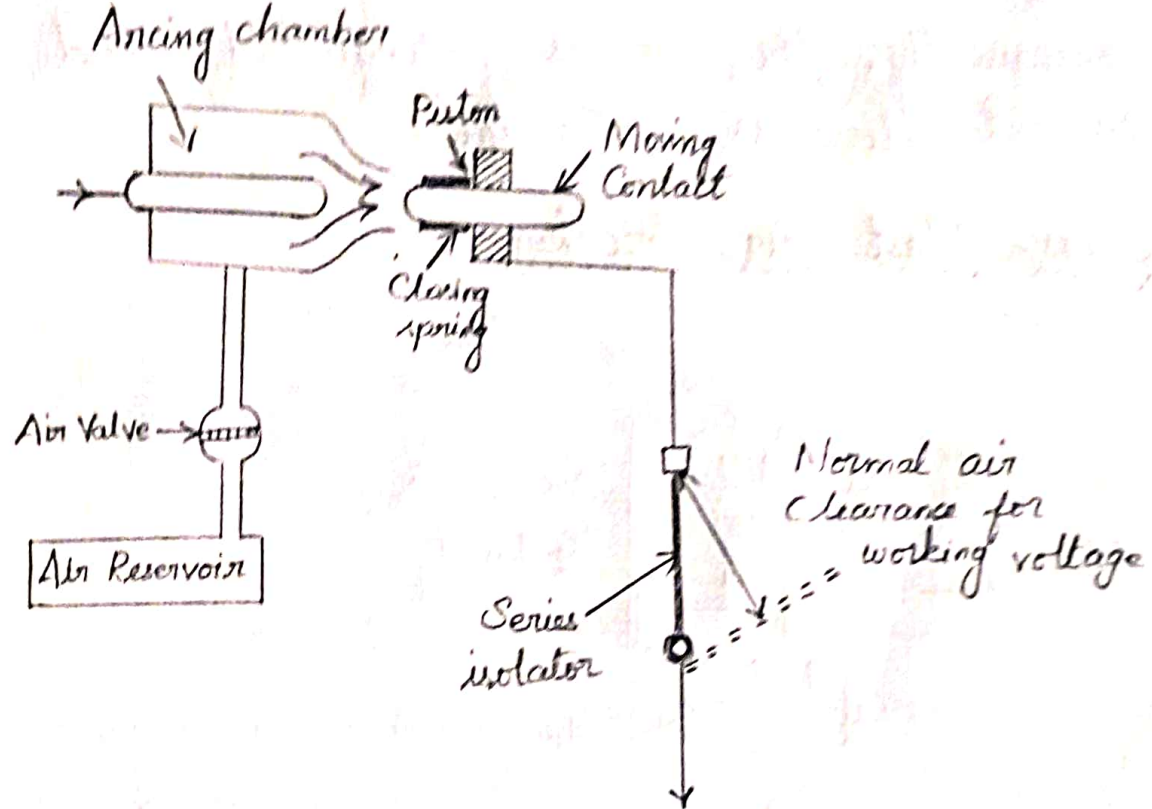 Arcing chamber
Piston
Moving
Contact
Closing
spring
Air Valve
Air Reservoir
Normal air
Clearance for
working voltage
Series
isolator